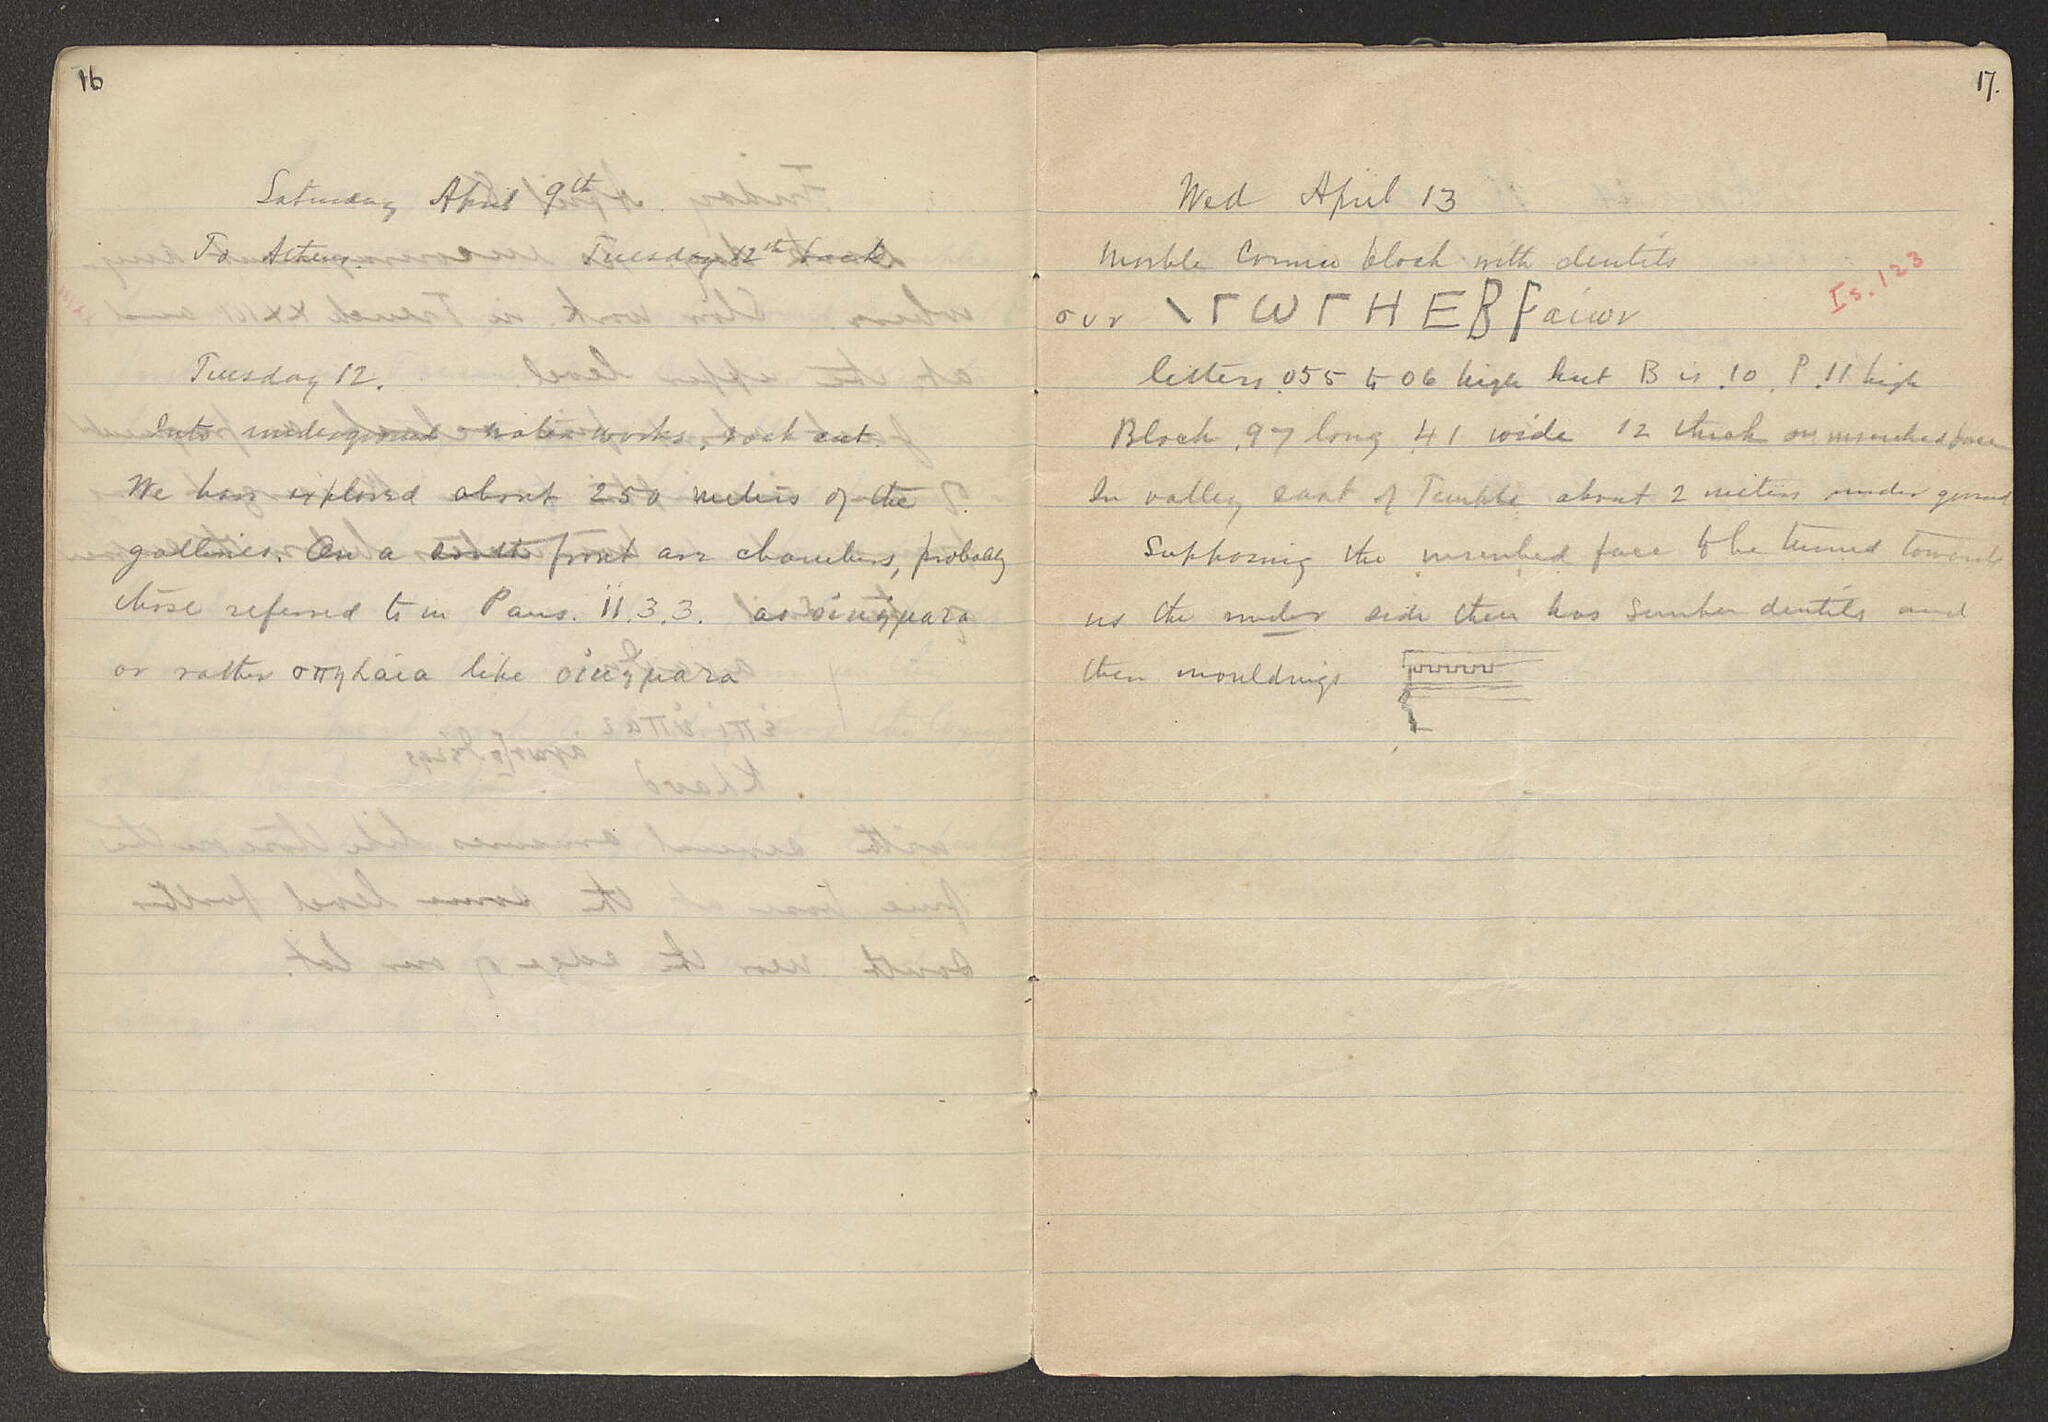 16
Saturday April 9th
To Athens. Tuesday 12th back
Tuesday 12.
Into underground water works, rock cut.
We have explored about 250 meters of the
galleries. On a south front are chambers, probably
those referred to in Paus. II.3.3. as οἰκήματα
or rather σπήλαια like οἰκήματα
17.
Wed April 13
Marble Cornice block with dentils
Is. 123
συν \ΓωΓΗΕΒΡαίων
letters .055 to 06 high but B is .10 P .11 high
Block .97 long .41 wide 12 thick on inscribed face
In valley east of Temple about 2 meters under ground
Supposing the inscribed face to be turned towards
us the under side then has sunken dentils and
then mouldings